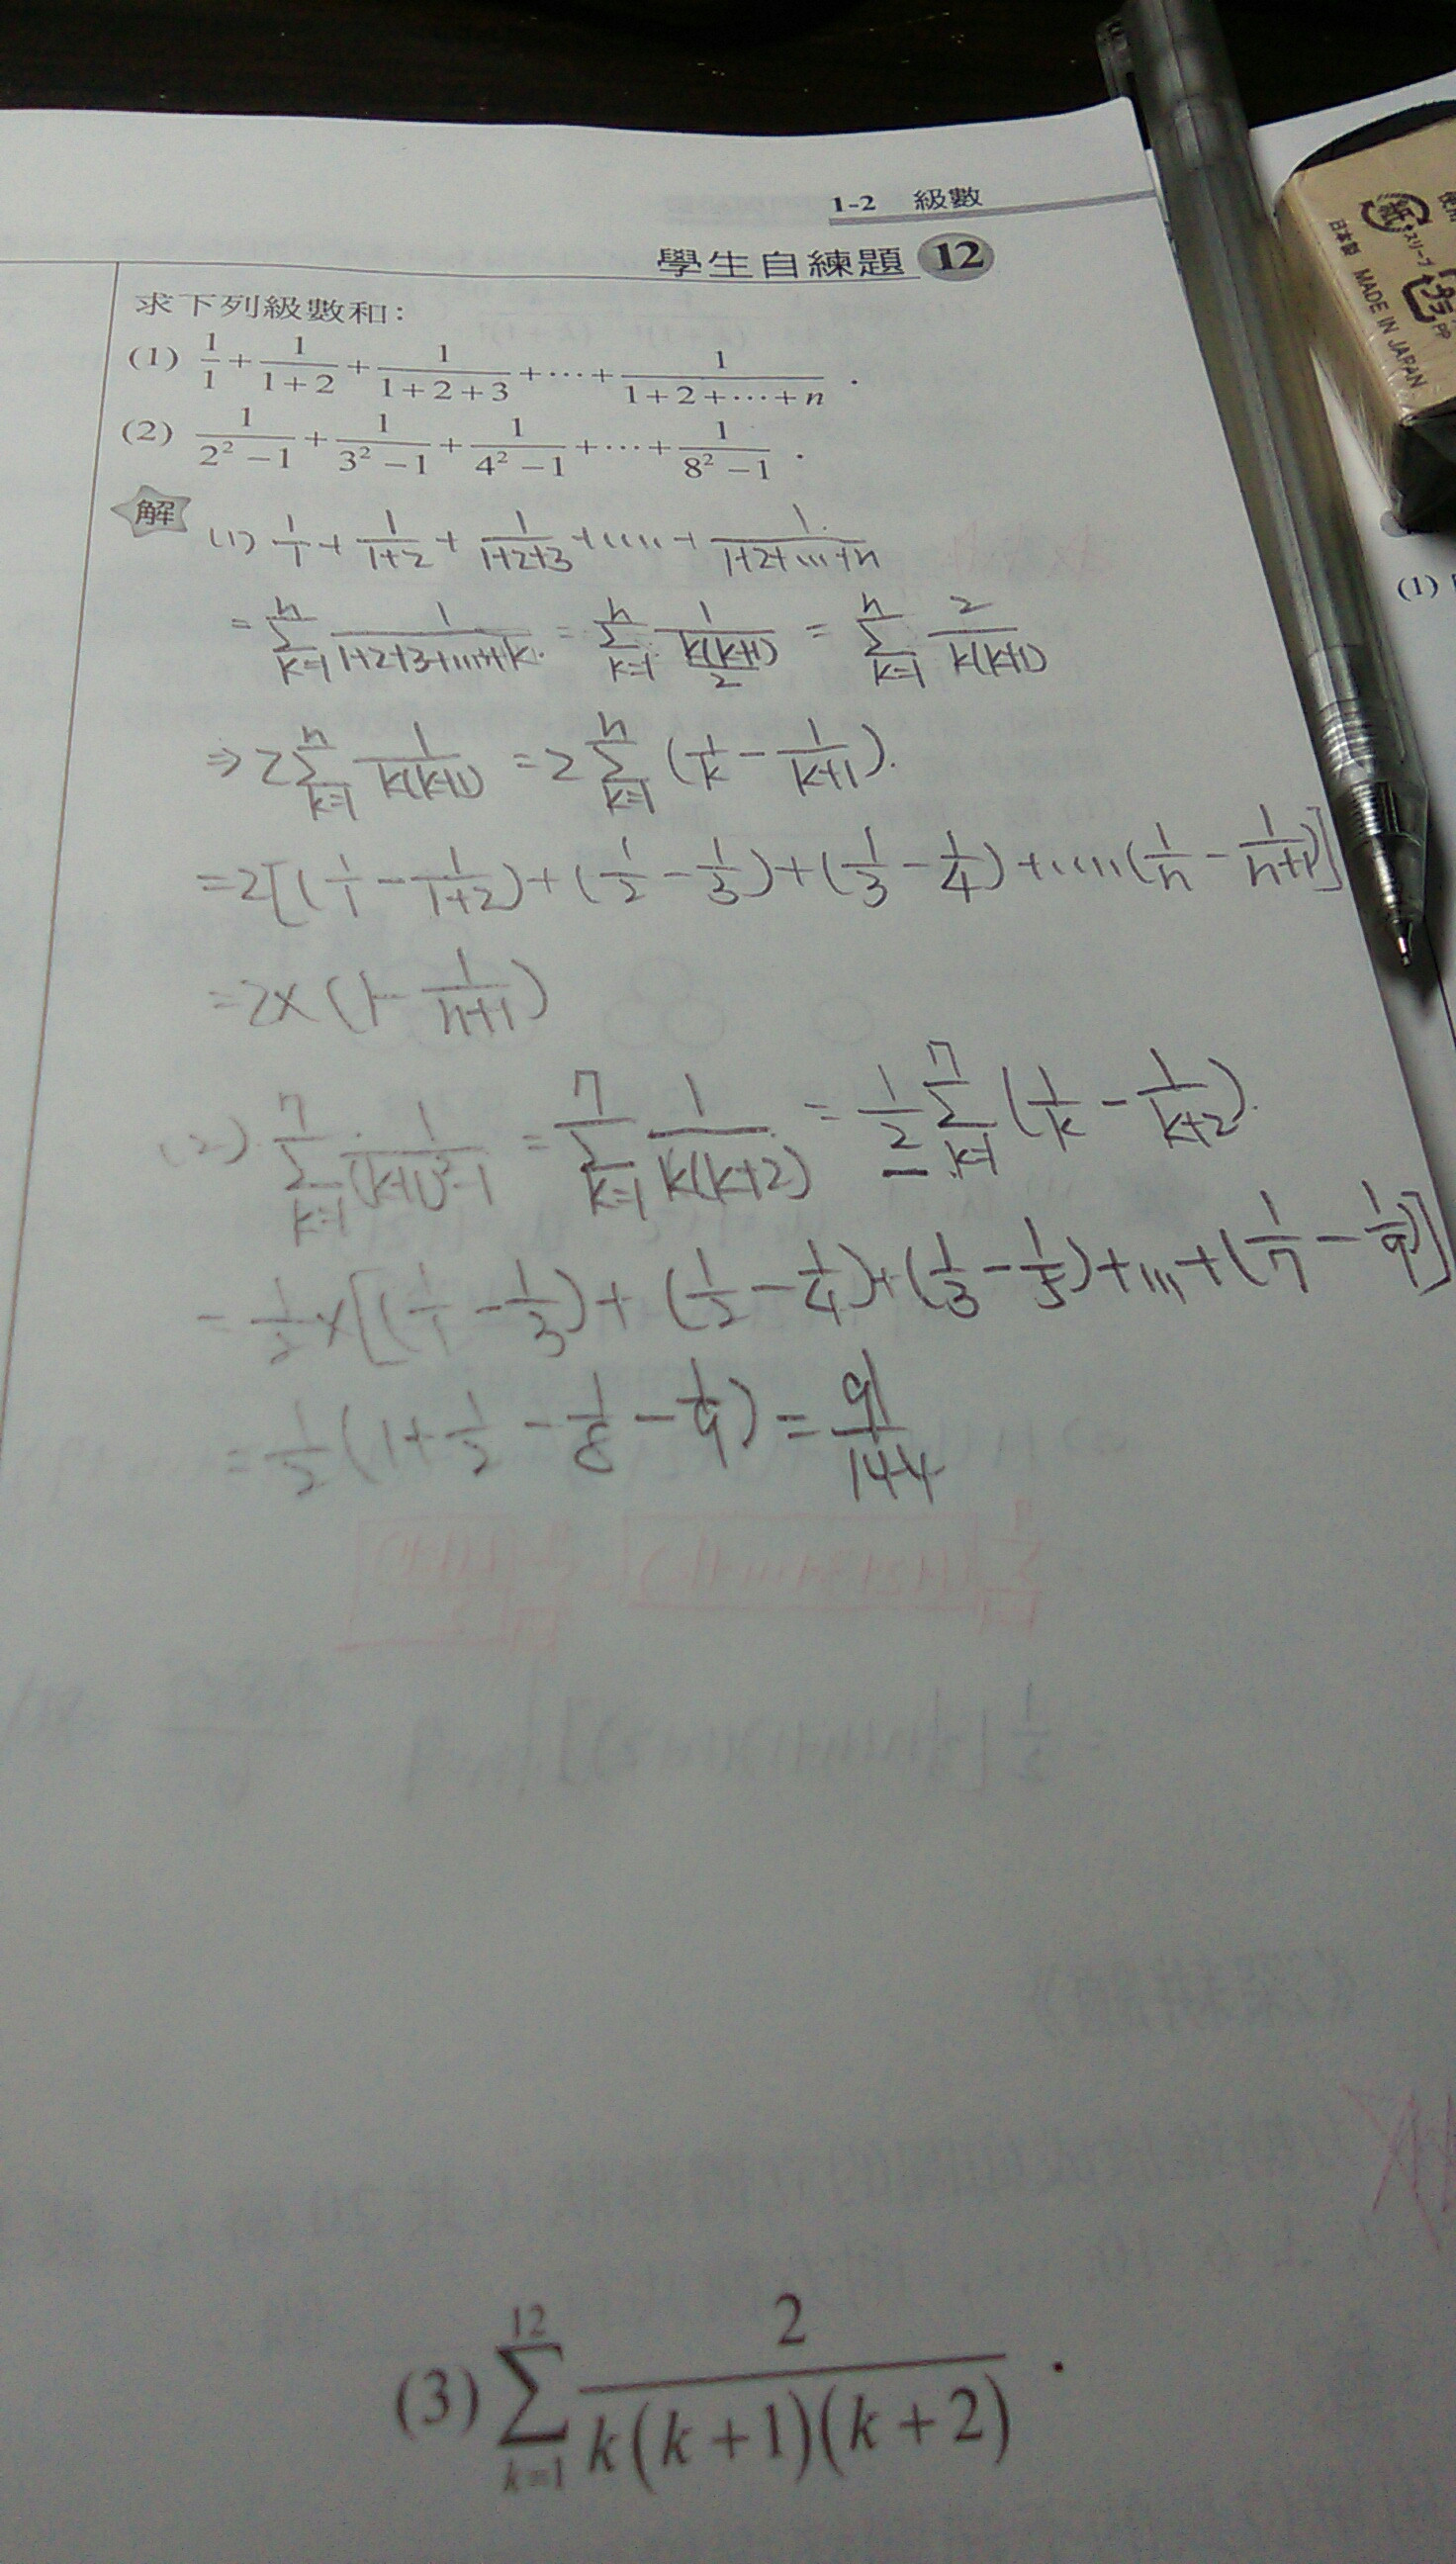 1-2 級數
學生自練題 12
求下列級數和：
(1) 1/1 + 1/(1+2) + 1/(1+2+3) + ⋯ + 1/(1+2+⋯+n) .
(2) 1/(2²−1) + 1/(3²−1) + 1/(4²−1) + ⋯ + 1/(8²−1) .
解 (1) 1/1 + 1/(1+2) + 1/(1+2+3) + ⋯ + 1/(1+2+⋯+n)
= Σ_{k=1}^{n} 1/(1+2+3+⋯+k) = Σ_{k=1}^{n} 1/(k(k+1)/2) = Σ_{k=1}^{n} 2/(k(k+1))
⇒ 2 Σ_{k=1}^{n} 1/(k(k+1)) = 2 Σ_{k=1}^{n} (1/k − 1/(k+1)).
= 2[(1/1 − 1/(1+2)) + (1/2 − 1/3) + (1/3 − 1/4) + ⋯ (1/n − 1/(n+1))]
= 2 × (1 − 1/(n+1))
(2) Σ_{k=1}^{7} 1/((k+1)²−1) = Σ_{k=1}^{7} 1/(k(k+2)) = 1/2 Σ_{k=1}^{7} (1/k − 1/(k+2)).
= 1/2 × [(1/1 − 1/3) + (1/2 − 1/4) + (1/3 − 1/5) + ⋯ + (1/7 − 1/9)]
= 1/2 (1 + 1/2 − 1/8 − 1/9) = 91/144
(3) Σ_{k=1}^{12} 2/(k(k+1)(k+2)) .
(1)
紙
日本製 MADE IN JAPAN